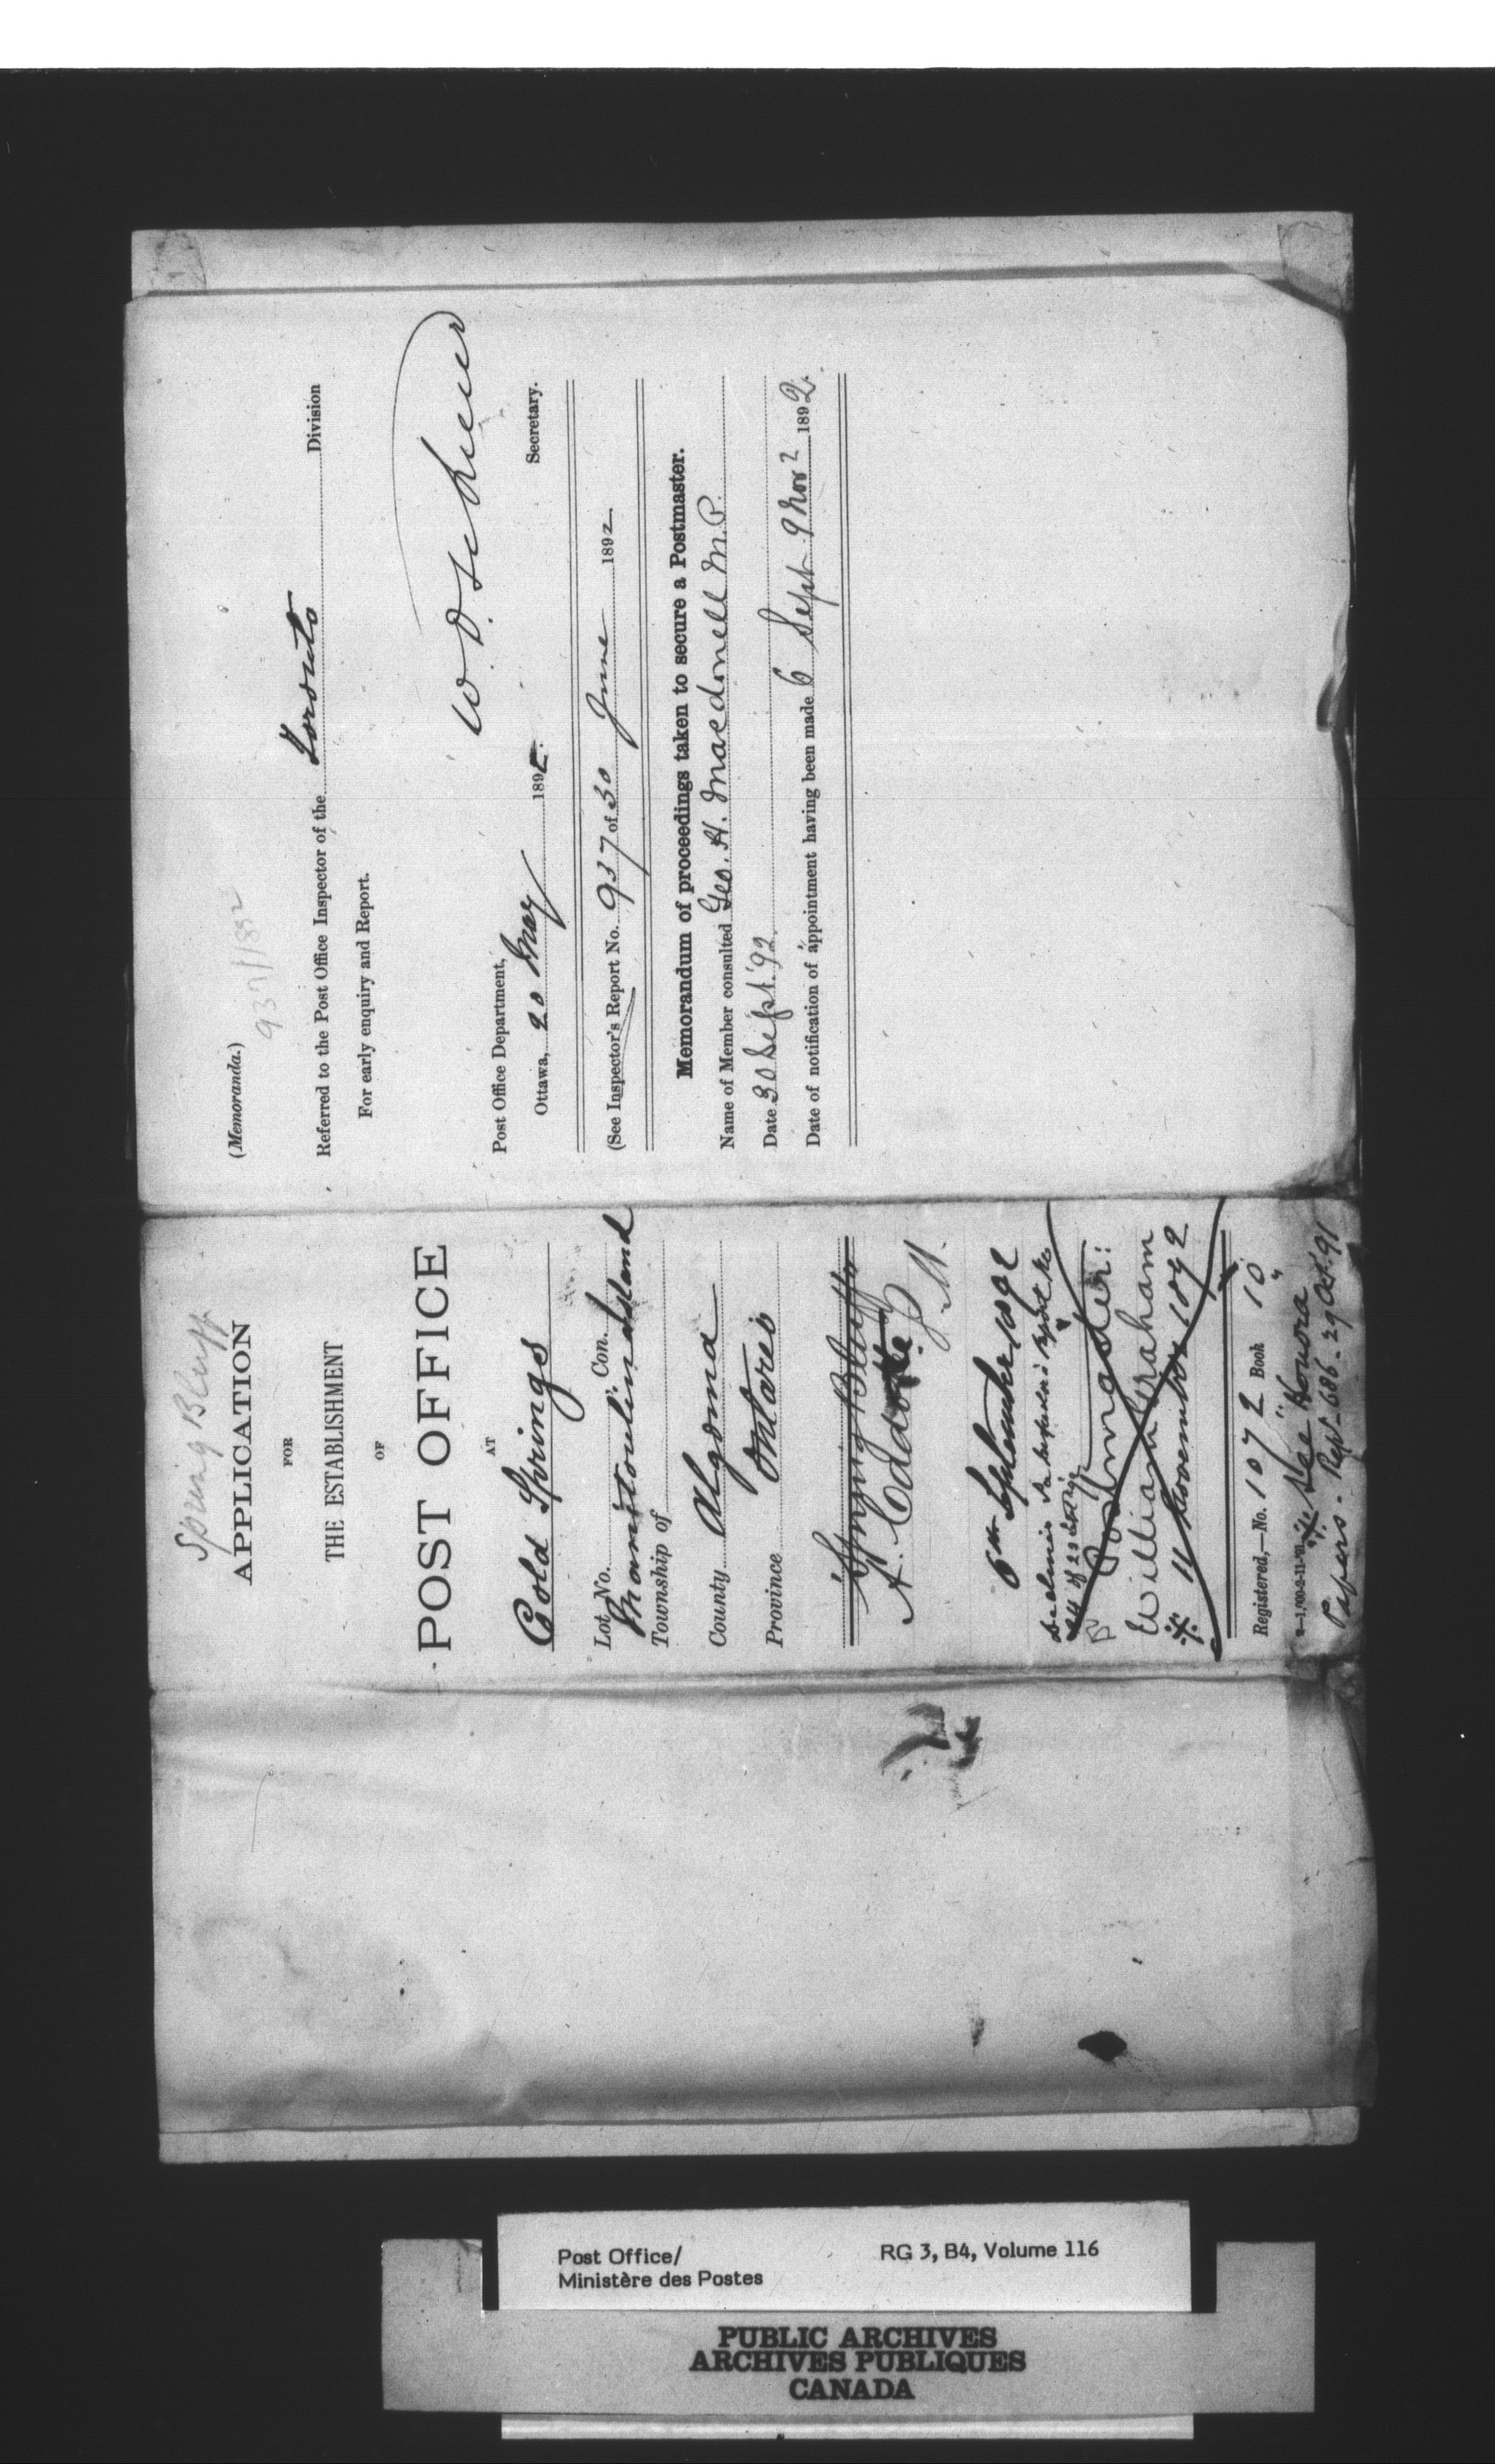 Spring Bluff
APPLICATION
FOR
THE ESTABLISHMENT
OF
POST OFFICE
AT
Cold Springs
Lot No. Con.
Manitoulin Island
Township of
County Algoma
Province Ontario
Spring Bluff
A.
P.M.
6th September 1892
Declines See Inspector's Report No
of
Postmaster:
William Graham
11 November 1892
Registered,—No. 1072 Book 10
See "Honora"
Papers. Rept 686. 29 Oct. 91
(Memoranda.)
937/1892
Referred to the Post Office Inspector of the Toronto Division
For early enquiry and Report.
W.D.
Secretary.
Post Office Department,
Ottawa, 20 May 1892.
(See Inspector's Report No. 937 of 30 June 1892
Memorandum of proceedings taken to secure a Postmaster.
Name of Member consulted Geo. H. Macdonell M.P.
Date 30 Sept. '92.
Date of notification of appointment having been made 6 Sept. 9 Nov 2 1892.
Post Office/
Ministère des Postes
RG 3, B4, Volume 116
PUBLIC ARCHIVES
ARCHIVES PUBLIQUES
CANADA